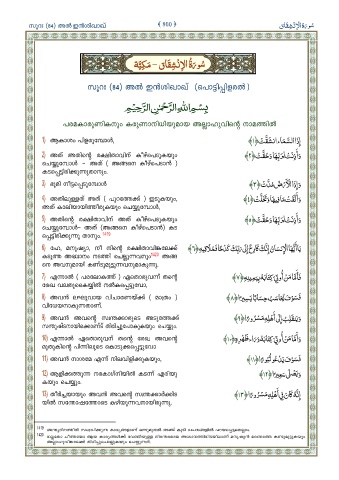 സൂറഃ (84) അൽ ഇൻശിഖാഖ് ﴿ 900 ﴾ سُورَةُ الِانْشِقَاقِ
سُورَةُ الِانْشِقَاقِ - مَكِّيَّة
സൂറഃ (84) അൽ ഇൻശിഖാഖ് (പൊട്ടിപ്പിളരൽ)
بِسْمِ اللَّهِ الرَّحْمَٰنِ الرَّحِيمِ
പരമകാരുണികനും കരുണാനിധിയുമായ അല്ലാഹുവിന്റെ നാമത്തിൽ
1) ആകാശം പിളരുമ്പോൾ, إِذَا السَّمَاءُ انْشَقَّتْ ﴿١﴾
2) അത് അതിന്റെ രക്ഷിതാവിന് കീഴ്പെടുകയും وَأَذِنَتْ لِرَبِّهَا وَحُقَّتْ ﴿٢﴾
ചെയ്യുമ്പോൾ - അത് (അങ്ങനെ കീഴ്പെടാൻ)
കടപ്പെട്ടിരിക്കുന്നുതാനും.
3) ഭൂമി നീട്ടപ്പെടുമ്പോൾ وَإِذَا الْأَرْضُ مُدَّتْ ﴿٣﴾
4) അതിലുള്ളത് അത് (പുറത്തേക്ക്) ഇടുകയും, وَأَلْقَتْ مَا فِيهَا وَتَخَلَّتْ ﴿٤﴾
അത് കാലിയായിത്തീരുകയും ചെയ്യുമ്പോൾ,
5) അതിന്റെ രക്ഷിതാവിന് അത് കീഴ്പെടുകയും وَأَذِنَتْ لِرَبِّهَا وَحُقَّتْ ﴿٥﴾
ചെയ്യുമ്പോൾ- അത് (അങ്ങനെ കീഴ്പെടാൻ) കട
പ്പെട്ടിരിക്കുന്നു താനും.
6) ഹേ, മനുഷ്യാ, നീ നിന്റെ രക്ഷിതാവിങ്കലേക്ക് يَا أَيُّهَا الْإِنْسَانُ إِنَّكَ كَادِحٌ إِلَىٰ رَبِّكَ كَدْحًا فَمُلَاقِيهِ ﴿٦﴾
കടുത്ത അദ്ധ്വാനം നടത്തി ചെല്ലുന്നവനും അങ്ങ
നെ അവനുമായി കണ്ടുമുട്ടുന്നവനുമാകുന്നു.
7) എന്നാൽ (പരലോകത്ത്) ഏതൊരുവന്ന് തന്റെ فَأَمَّا مَنْ أُوتِيَ كِتَابَهُ بِيَمِينِهِ ﴿٧﴾
രേഖ വലതുകൈയ്യിൽ നൽകപ്പെട്ടുവോ,
8) അവൻ ലഘുവായ വിചാരണയ്ക്ക് (മാത്രം) فَسَوْفَ يُحَاسَبُ حِسَابًا يَسِيرًا ﴿٨﴾
വിധേയനാകുന്നതാണ്.
9) അവൻ അവന്റെ സ്വന്തക്കാരുടെ അടുത്തേക്ക് وَيَنْقَلِبُ إِلَىٰ أَهْلِهِ مَسْرُورًا ﴿٩﴾
സന്തുഷ്ടനായിക്കൊണ്ട് തിരിച്ചുപോകുകയും ചെയ്യും.
10) എന്നാൽ ഏതൊരുവന് തന്റെ രേഖ അവന്റെ وَأَمَّا مَنْ أُوتِيَ كِتَابَهُ وَرَاءَ ظَهْرِهِ ﴿١٠﴾
മുതുകിന്റെ പിന്നിലൂടെ കൊടുക്കപ്പെട്ടുവോ
11) അവൻ നാശമേ എന്ന് നിലവിളിക്കുകയും, فَسَوْفَ يَدْعُو ثُبُورًا ﴿١١﴾
12) ആളിക്കത്തുന്ന നരകാഗ്നിയിൽ കടന്ന് എരിയു وَيَصْلَىٰ سَعِيرًا ﴿١٢﴾
കയും ചെയ്യും.
13) തീർച്ചയായും അവൻ അവന്റെ സ്വന്തക്കാർക്കിട إِنَّهُ كَانَ فِي أَهْلِهِ مَسْرُورًا ﴿١٣﴾
യിൽ സന്തോഷത്തോടെ കഴിയുന്നവനായിരുന്നു.